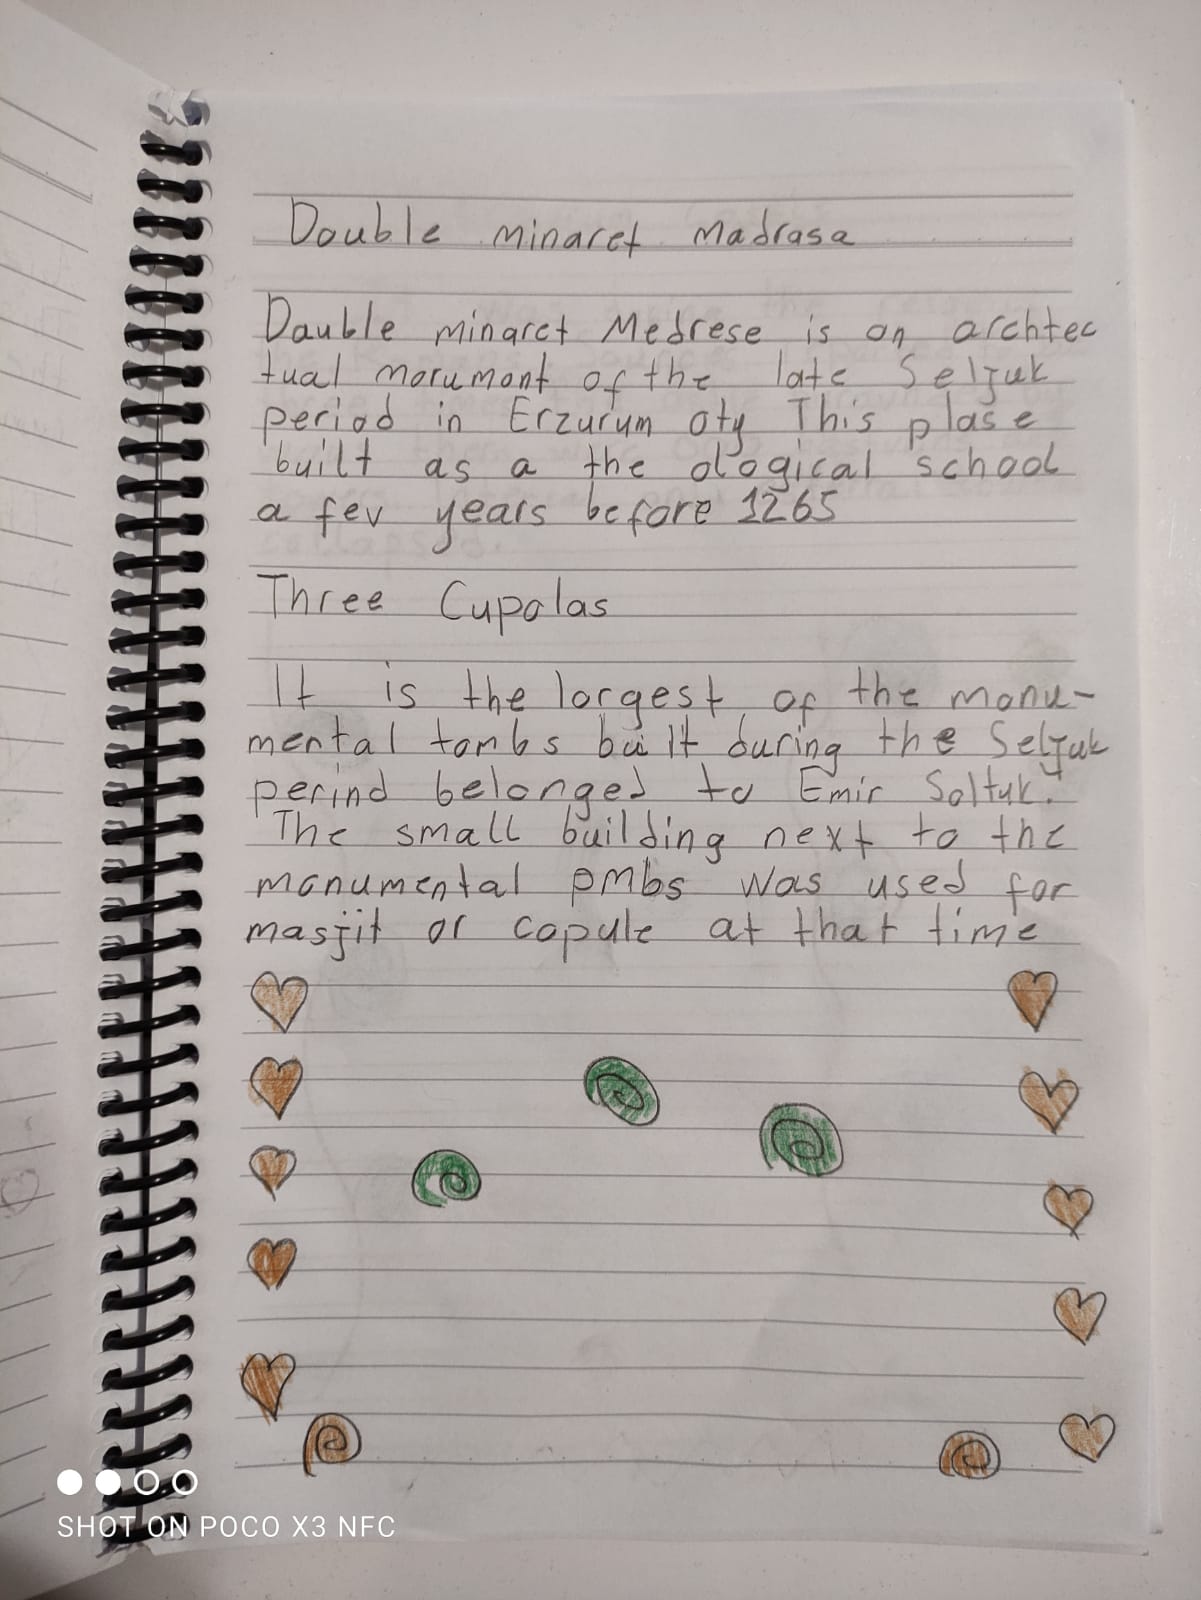 Double minaret Madrasa
Dauble minaret Medrese is an archtec
tual morumont of the late Seljuk
period in Erzurum aty This plase
built as a the ological school
a fev years before 1265
Three Cupolas
It is the largest of the monu-
mental tombs built during the Seljuk
perind belonged to Emir Saltuk.
The small building next to the
monumental pmbs was used for
masjit or copule at that time
SHOT ON POCO X3 NFC